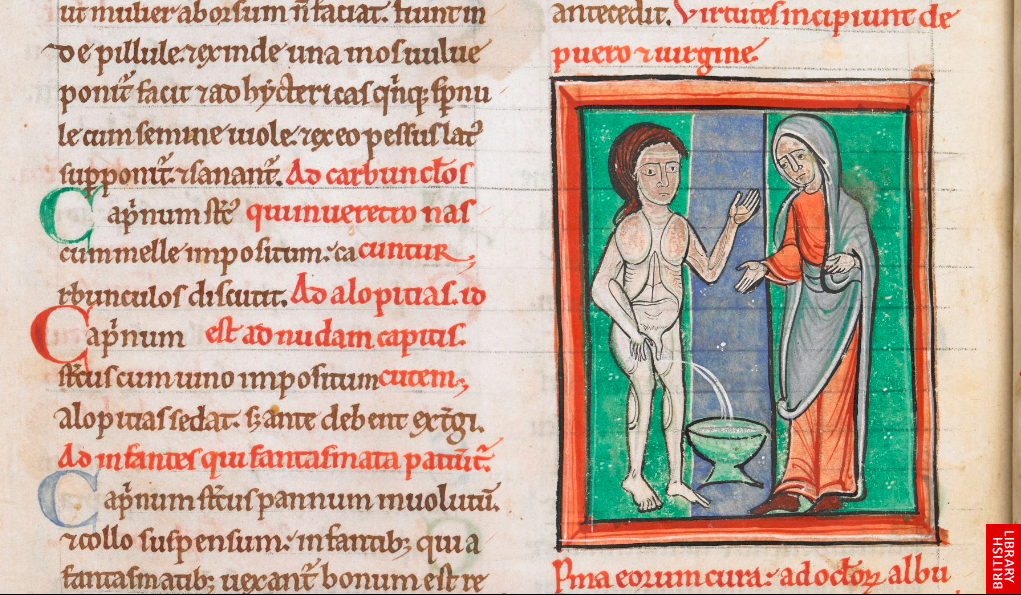 ut mulier aborsum n̄ faciat. hunt in
de pillule. ⁊ exinde una mos uulue
ponit᷑ facit ⁊ ad hyctericas
le cum semine uiole. ⁊ ex eo pessus lat᷑
supponit᷑ ⁊ sanant᷑. Ad carbunclos
Cap̄num st̄c᷑ qui in ueretro nas
cum melle impositum. ca cuntur,
rbunculos discutit. Ad alopitias. id
Cap̄num est ad nudam capitis.
st̄cus cum uino impositum cutem,
alopitias sedat. s; ante debent ext̄gi.
Ad infantes qui fantasmata patiūt᷑.
Cap̄num st̄cus pannum inuolutū.
⁊ collo suspensum. infantib; qui a
fantasmatib; uexant᷑ bonum est re
antecedit. Virtutes incipiunt de
puero ⁊ uirgine.
P̄ma eorum cura. ad oct̄oꝝ albu
BRITISH
LIBRARY